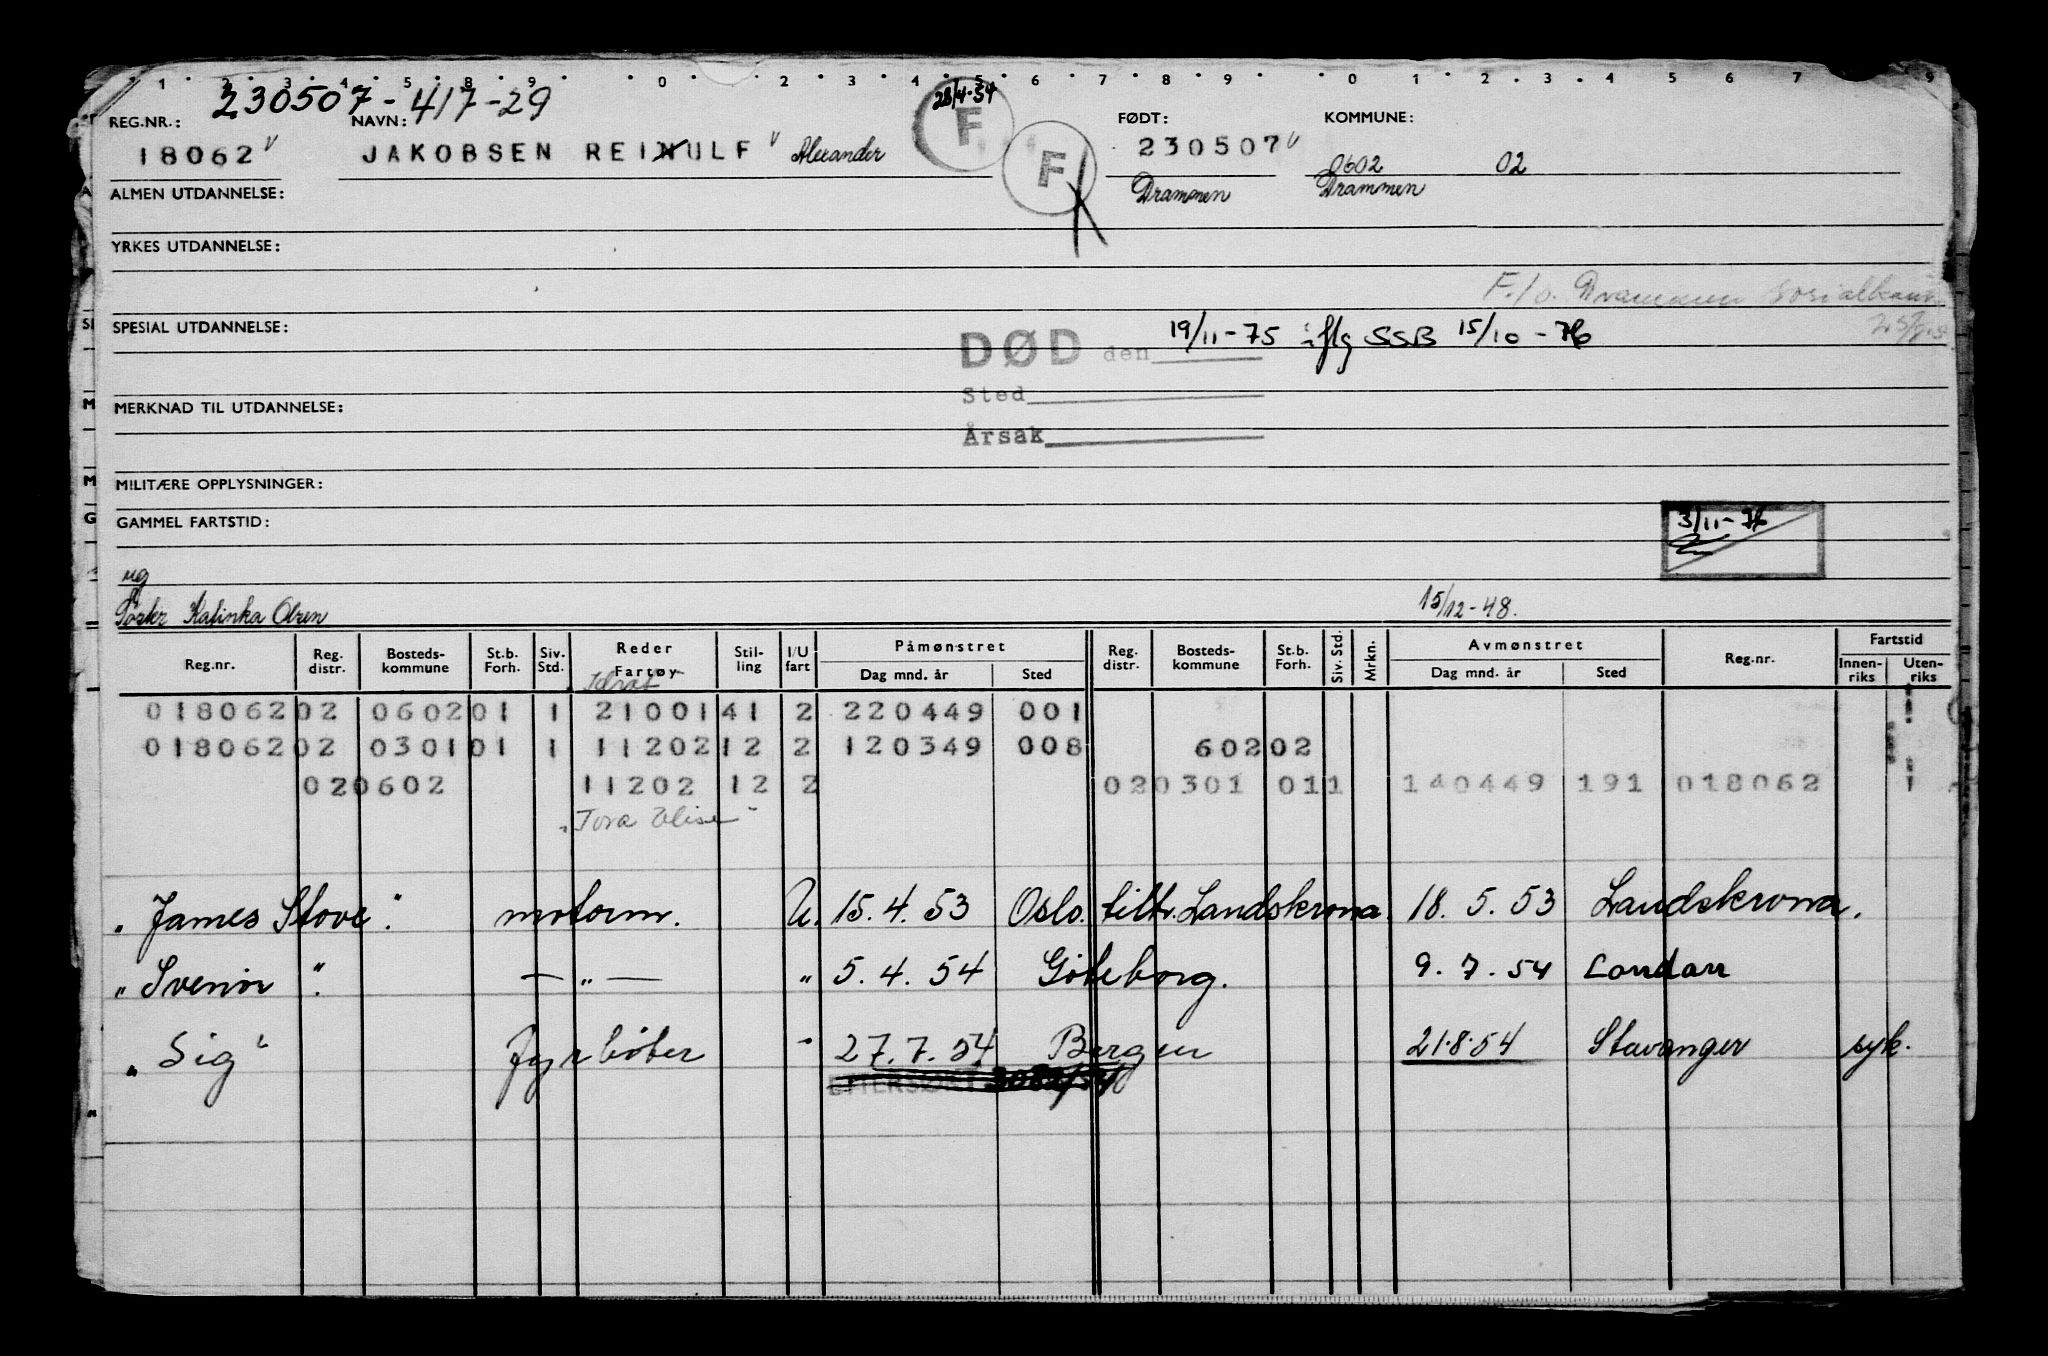 230507-417-29
28/4-54
REG.NR.: NAVN: FØDT: KOMMUNE:
18062 v JAKOBSEN REINULF v Alexander F F 230507 v 0602 02
ALMEN UTDANNELSE: Drammen Drammen
YRKES UTDANNELSE:
F./o. Drammen
SPESIAL UTDANNELSE: DØD den 19/11-75 iflg SSB 15/10-76
Sted
MERKNAD TIL UTDANNELSE:
Årsak
MILITÆRE OPPLYSNINGER:
GAMMEL FARTSTID: 3/11-76
ug
Søster Kafinka Olsen 15/12-48.
Reg.nr. Reg. distr. Bosteds- kommune St.b. Forh. Siv. Std. Reder Fartøy Stil- ling I/U fart Påmønstret Dag mnd. år Sted Reg. distr. Bosteds- kommune St.b. Forh. Siv. Std. Mrkn. Avmønstret Dag mnd. år Sted Reg.nr. Fartstid Innen- riks Uten- riks
018062 02 0602 01 1 21001 41 2 220449 001
018062 02 0301 01 1 11202 12 2 120349 008 602 02
02 0602 11202 12 2 02 0301 01 1 140449 191 018062
"James Stove" motorm. U. 15.4.53 Oslo. tiltr. Landskrona. 18.5.53 Landskrona.
" — " — " 5.4.54 Göteborg. 9.7.54 London
"Sig" Fyrbøter " 27.7.54 Bergen 21.8.54 Stavanger syk.
ETTERSØKT